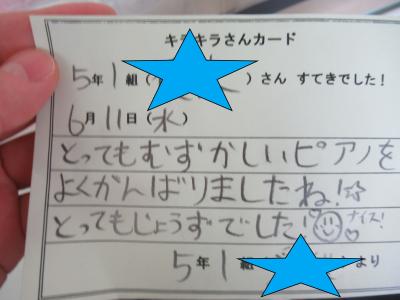 キラキラさんカード
5年1組( )さん すてきでした!
6月11日(水)
とってもむずかしいピアノを
よくがんばりましたね!☆
とってもじょうずでした! ナイス!
5年1組 より